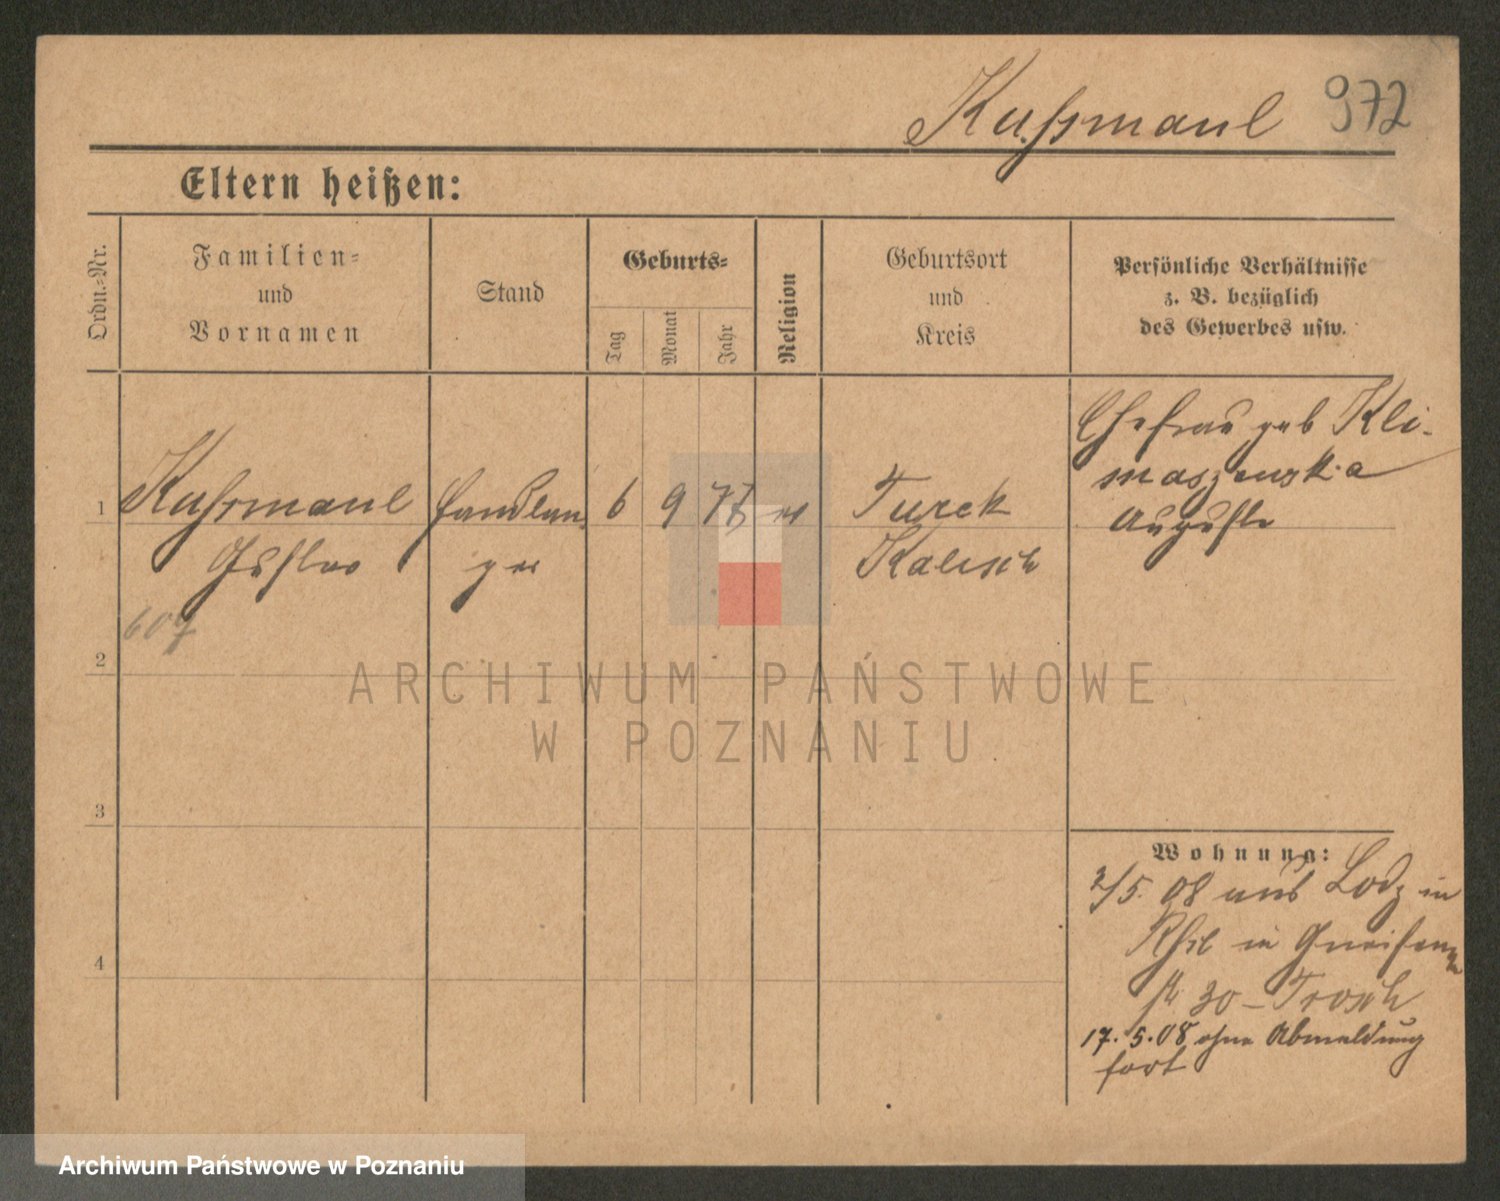 Kußmaul 972
Eltern heißen:
Ordn.-Nr.
Familien-
und
Vornamen
Stand
Geburts-
Tag
Monat
Jahr
Religion
Geburtsort
und
Kreis
Persönliche Verhältnisse
z. B. bezüglich
des Gewerbes usw.
1
Kußmaul
Gustav
607
Handlan
ger
6
9
77
ev
Turek
Kalisch
Ehefrau geb Kli-
maszewska
Auguste
2
3
4
Wohnung:
2/5. 08 aus Lodz in
in Gneisenau
str 30 - Trosch
17. 5. 08 ohne Abmeldung
fort
ARCHIWUM PAŃSTWOWE
W POZNANIU
Archiwum Państwowe w Poznaniu